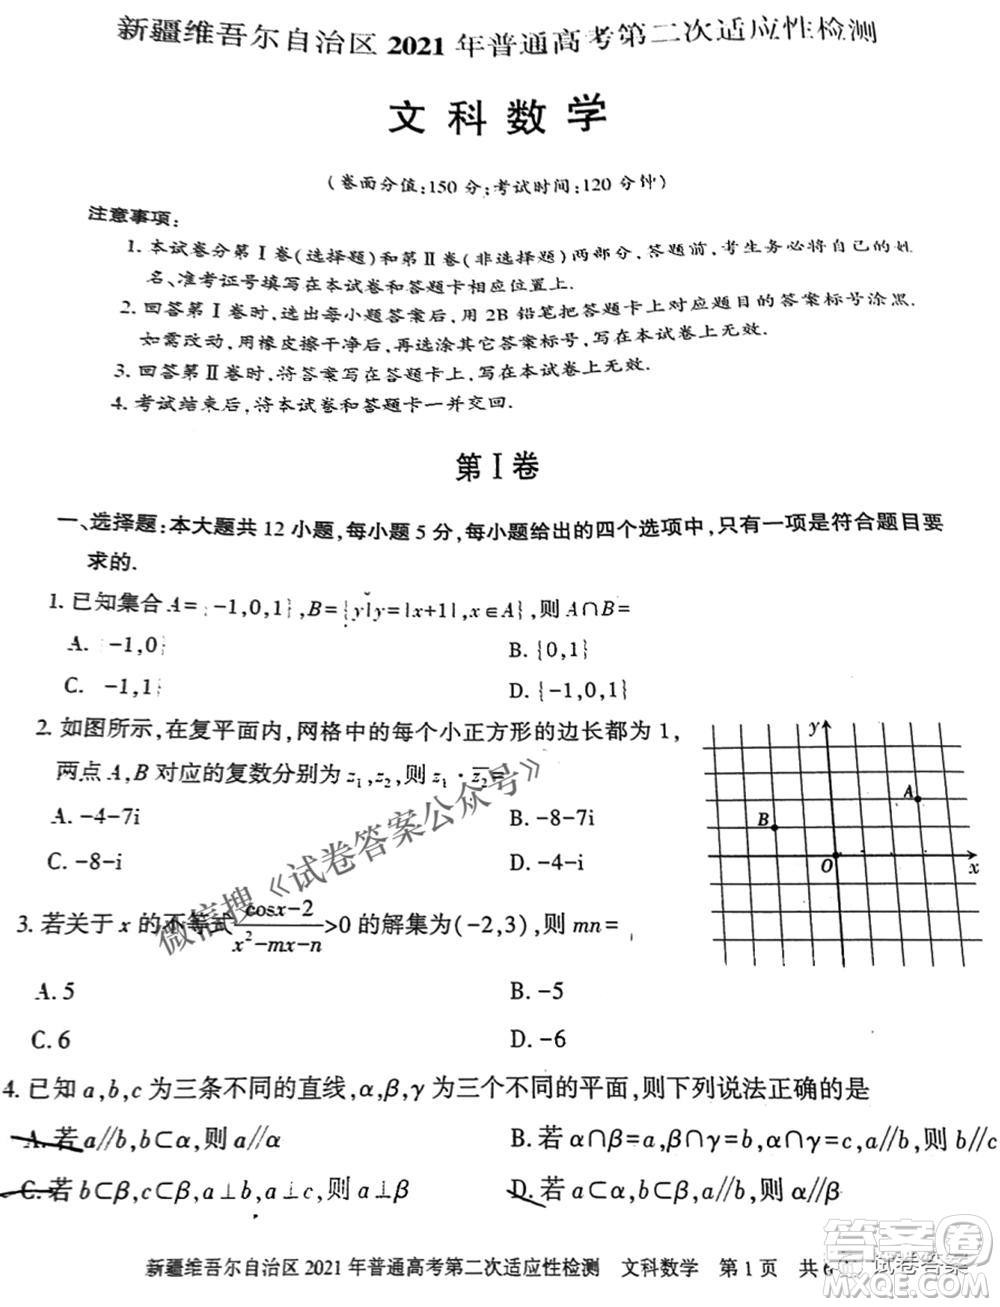 新疆维吾尔自治区2021年普通高考第二次适应性检测
文科数学
(卷面分值:150分;考试时间:120分钟)
注意事项:
1. 本试卷分第Ⅰ卷(选择题)和第Ⅱ卷(非选择题)两部分,答题前,考生务必将自己的姓
名、准考证号填写在本试卷和答题卡相应位置上.
2. 回答第Ⅰ卷时,选出每小题答案后,用2B铅笔把答题卡上对应题目的答案标号涂黑.
如需改动,用橡皮擦干净后,再选涂其它答案标号,写在本试卷上无效.
3. 回答第Ⅱ卷时,将答案写在答题卡上,写在本试卷上无效.
4. 考试结束后,将本试卷和答题卡一并交回.
第Ⅰ卷
一、选择题:本大题共12小题,每小题5分,每小题给出的四个选项中,只有一项是符合题目要
求的.
1. 已知集合A={-1,0,1},B={y|y=|x+1|,x∈A},则A∩B=
A. {-1,0}
B. {0,1}
C. {-1,1}
D. {-1,0,1}
2. 如图所示,在复平面内,网格中的每个小正方形的边长都为1,
两点A,B对应的复数分别为z₁,z₂,则z₁·z̄₂=
A. -4-7i
B. -8-7i
C. -8-i
D. -4-i
y
A
B
O
x
3. 若关于x的不等式(cosx-2)/(x²-mx-n)>0的解集为(-2,3),则mn=
A. 5
B. -5
C. 6
D. -6
4. 已知a,b,c为三条不同的直线,α,β,γ为三个不同的平面,则下列说法正确的是
A. 若a//b,b⊂α,则a//α
B. 若α∩β=a,β∩γ=b,α∩γ=c,a//b,则b//c
C. 若b⊂β,c⊂β,a⊥b,a⊥c,则a⊥β
D. 若a⊂α,b⊂β,a//b,则α//β
新疆维吾尔自治区2021年普通高考第二次适应性检测 文科数学 第1页 共6
微信搜《试卷答案公众号》
答案圈
试卷答案
MXQE.COM